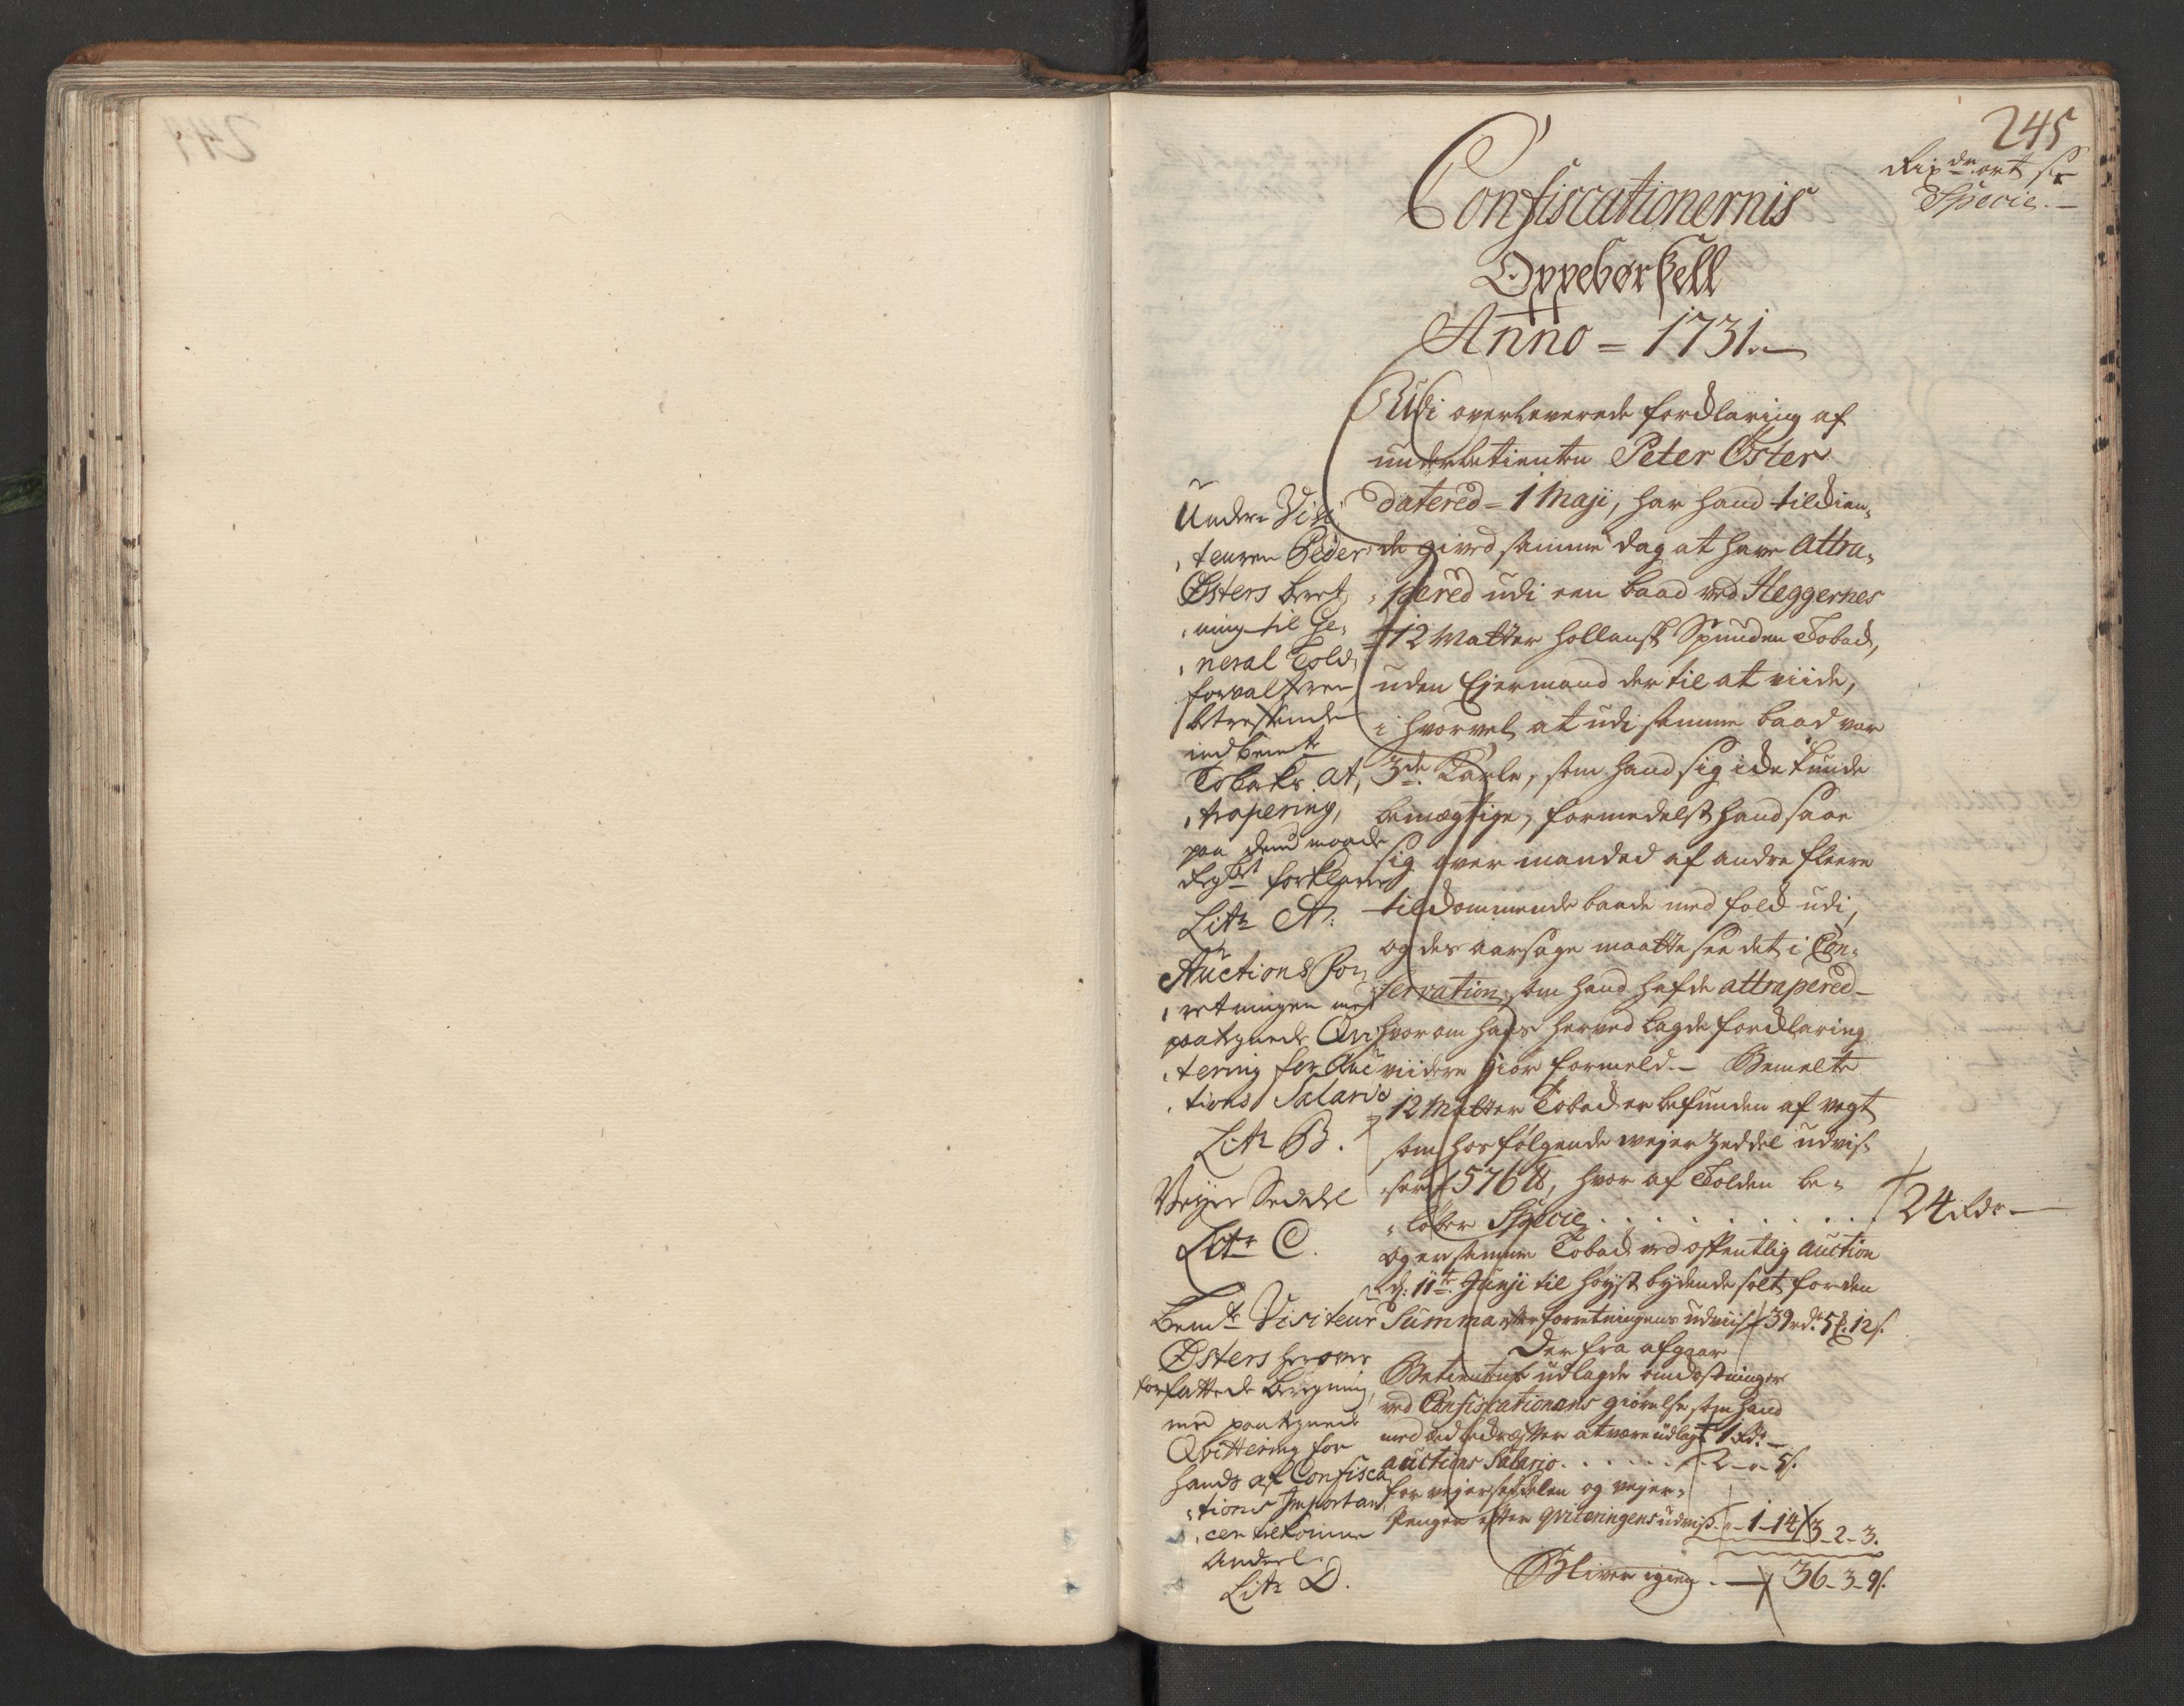 245
Rixdr ort sk
Specie.
Confiscationernis
Oppebørsell
Anno = 1731.
Udi overleverede forklaring af
underbetienten Peter Öster
datered = 1 Maji, har hand tilkien-
de gived samme dag at have Attra-
pered udi een baad ved Heggernes
12 Matter hollansk Spunden Tobak,
uden Ejermand der til at viide,
i hvorvel at udi samme baad var
3de Karle, som hand sig icke kunde
bemægtige, formedelst hand saae
sig over manded af andre fleere
tilkommende baade med folk udi,
og des aarsage maatte see det i Con-
servation, som hand hafde attrapered
hvor om hans herved lagde forklaring
viidere giør formeld.- Bemelte
12 Matter Tobak er befunden af vegt
som hos følgende vejer Zeddel udvis-
ser 576 ℔, hvor af Tolden be-
løber Specie . . . . . . . 24 Rdr
Og er samme Tobak ved offentlig Auction
d: 11te Junji til høyst bydende solt for den
Summa efter forretningens udviis 39 rd 5 12 s.
Der fra afgaar
Betientens udlagde omkostninger
ved Confiscationens giørelse som hand
med eed bekræfter at være udlagt 1 Rd
auctions Salario . . . . . 2 - - 5 s.
for vejerseddelen og vejer-
Penger efter qviteringens udvis - 1 - 14 3 - 2 - 3.
Bliver igien . 36 - 3 - 9 s.
Under Visi
teuren Peder
Østers beret
ning til Ge-
neral Told
forvalteren
betreffende
indbemte
Tobaks at
trapering,
paa dend maade
forklarer
Litr A:
Auctions For
retningen med
paategnede Qvi
tering for Auc
tions Salario
Litr B.
Vejer Seddel
Litr C.
Bemte Visiteur
Østers herover
forfattede beregning,
med paategnede
Qvittering for
hands af Confisca
tions Importan
cen tilkomne
Andeel
Litr D.